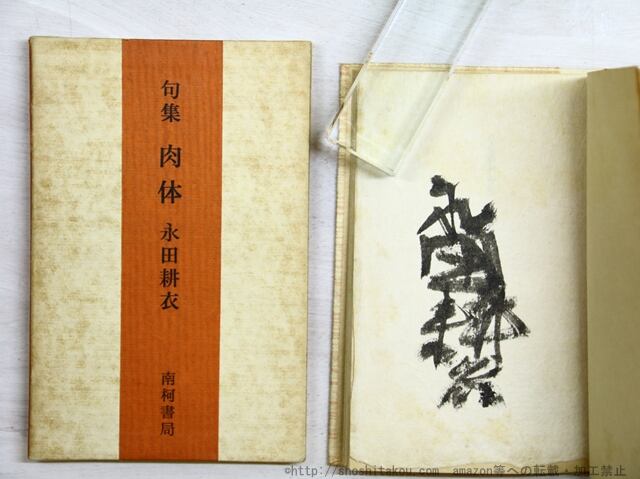 句集 肉体 永田耕衣
南柯書局
田荷軒
耕衣
©http://shoshitakou.com amazon等への転載・加工禁止